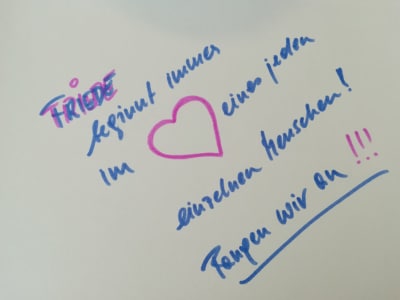 FRIEDE
beginnt immer
im ♥ eines jeden
einzelnen Menschen!
Fangen wir an !!!